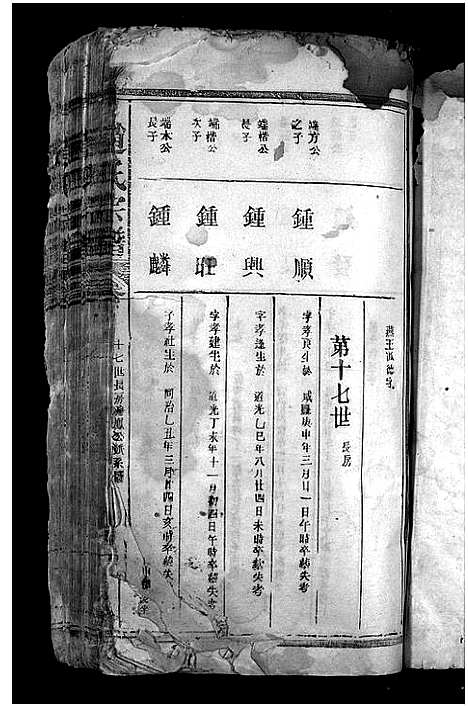 燕王派德字
第十七世 長房
端方公之子
鍾順
字孝良生於咸豐庚申年三月廿一日午時卒缺失考
端楷公長子
鍾興
字孝逢生於道光乙巳年八月廿四日未時卒缺失考
端楷公次子
鍾旺
字孝建生於道光丁未年十一月初四日午時卒缺失考
端本公長子
鍾麟
字孝社生於同治乙丑年三月廿四日亥時卒缺失
趙氏宗譜
十七世長房